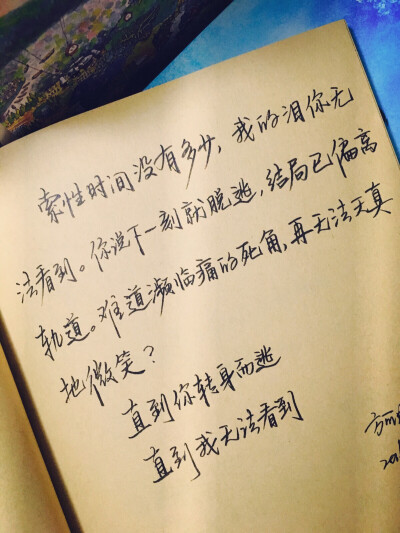 索性时间没有多少，我的泪你无
法看到。你说下一刻就脱逃，结局已偏离
轨道。难道濒临痛的死角，再无法天真
地微笑？
直到你转身而逃
直到我无法看到